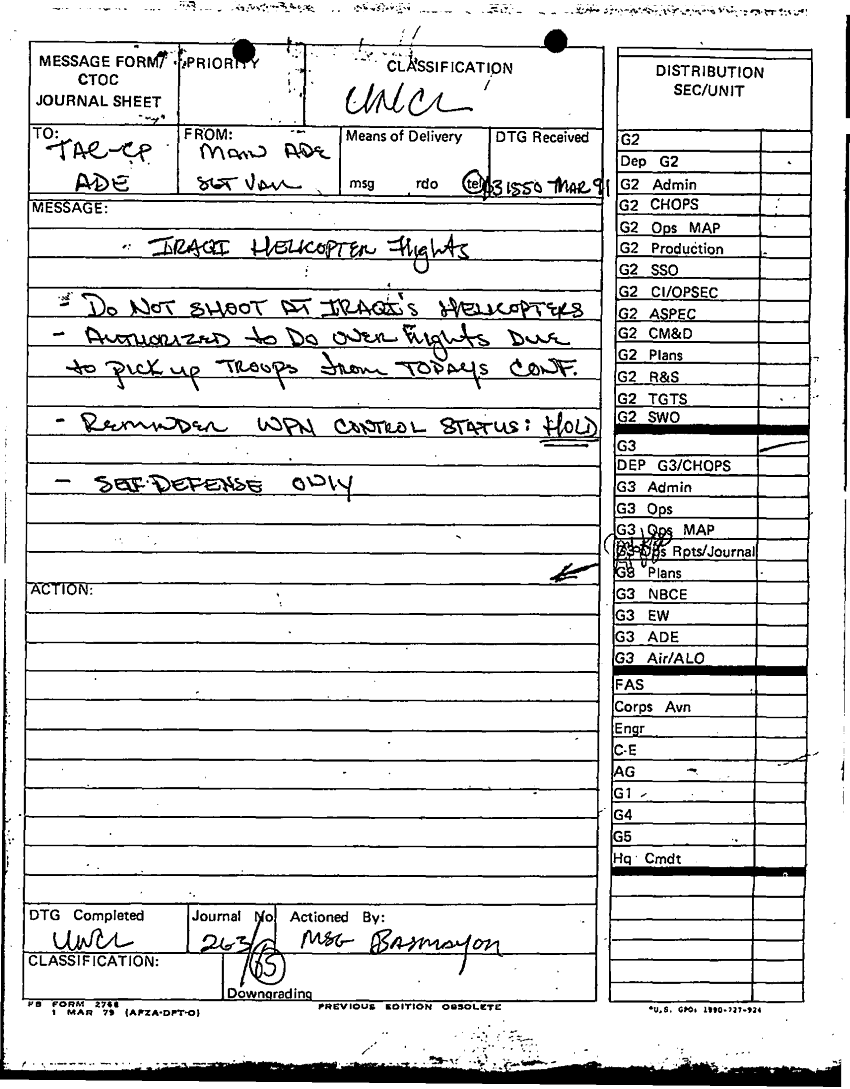 MESSAGE FORM/ PRIORITY CLASSIFICATION
CTOC
JOURNAL SHEET
UNCL
TO: FROM: Means of Delivery DTG Received
TAC-CP MAIN ADE
ADE SGT VAN msg rdo tel 031550 MAR 91
MESSAGE:
IRAQI HELICOPTER Flights
- DO NOT SHOOT AT IRAQI'S HELICOPTERS
- AUTHORIZED to DO OVER flights DUE
to pick up TROOPS from TODAYS CONF.
- REMINDER WPN CONTROL STATUS: HOLD
- SELF-DEFENSE ONLY
ACTION:
DTG Completed Journal No Actioned By:
UNCL 263/ MSG
65
CLASSIFICATION:
Downgrading
FB FORM 2768
1 MAR 79 (AFZA-DPT-O)
PREVIOUS EDITION OBSOLETE
DISTRIBUTION
SEC/UNIT
G2
Dep G2
G2 Admin
G2 CHOPS
G2 Ops MAP
G2 Production
G2 SSO
G2 CI/OPSEC
G2 ASPEC
G2 CM&D
G2 Plans
G2 R&S
G2 TGTS
G2 SWO
G3
DEP G3/CHOPS
G3 Admin
G3 Ops
G3 Ops MAP
G3 Ops Rpts/Journal
G3 Plans
G3 NBCE
G3 EW
G3 ADE
G3 Air/ALO
FAS
Corps Avn
Engr
C-E
AG
G1
G4
G5
Hq Cmdt
*U.S. GPO: 1990-727-924